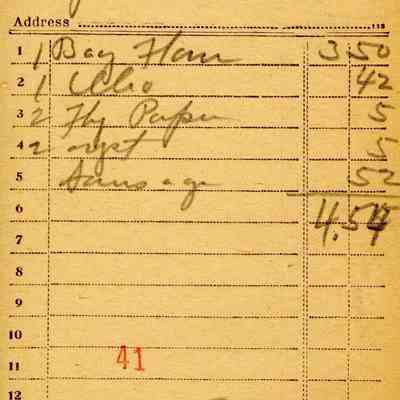 Address 115
1 1 Bag Flour 3 50
2 1 Oleo 42
3 2 Fly Paper 5
4 2 5
5 Sausage 52
6 4.54
7
8
9
10
11 41
12